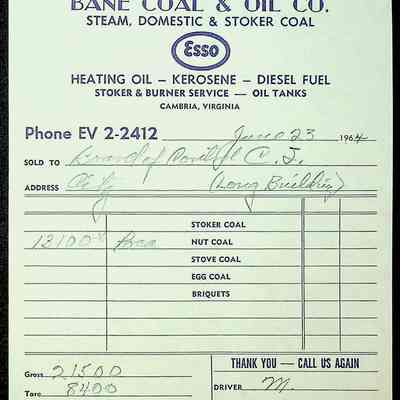 BANE COAL & OIL CO.
STEAM, DOMESTIC & STOKER COAL
Esso
HEATING OIL – KEROSENE – DIESEL FUEL
STOKER & BURNER SERVICE — OIL TANKS
CAMBRIA, VIRGINIA
Phone EV 2-2412 June 23 1964
SOLD TO
ADDRESS (Long Building)
STOKER COAL
13100 NUT COAL
STOVE COAL
EGG COAL
BRIQUETS
Gross 21500
Tare 8400
THANK YOU — CALL US AGAIN
DRIVER M.